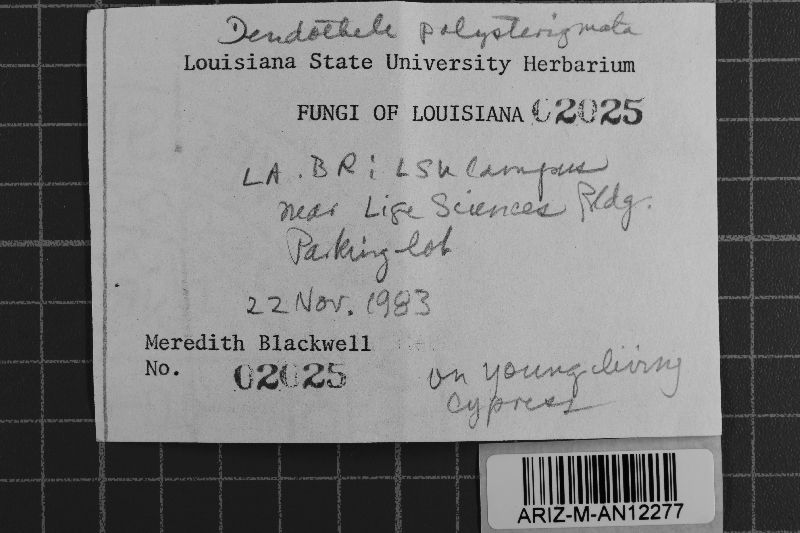 Dendothele polysterigmata
Louisiana State University Herbarium
FUNGI OF LOUISIANA 02025
LA. BR: LSU Campus
near Life Sciences Bldg.
Parking lot
22 Nov. 1983
Meredith Blackwell
No. 02025
on young living
cypress
ARIZ-M-AN12277